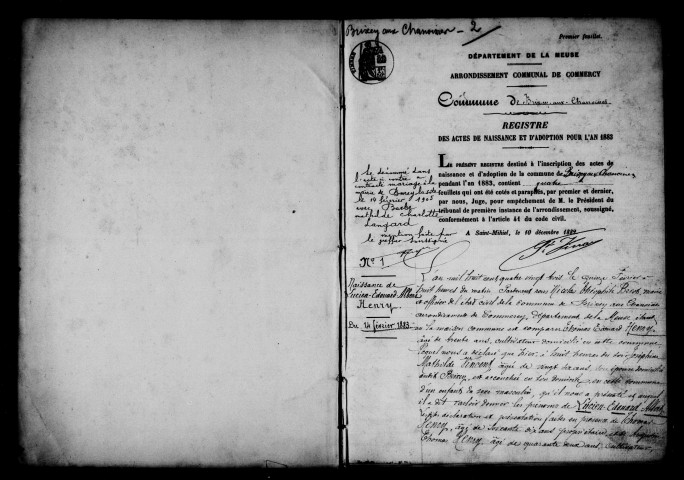 Brixey aux Chanoines - 2
Premier feuillet.
DÉPARTEMENT DE LA MEUSE
ARRONDISSEMENT COMMUNAL DE COMMERCY
Commune de Brixey-aux-Chanoines
REGISTRE
DES ACTES DE NAISSANCE ET D'ADOPTION POUR L'AN 1883
LE PRÉSENT REGISTRE destiné à l'inscription des actes de
naissance et d'adoption de la commune de Brixey aux Chanoines
pendant l'an 1883, contient quatre
feuillets qui ont été cotés et paraphés, par premier et dernier,
par nous, Juge, pour empêchement de M. le Président du
tribunal de première instance de l'arrondissement, soussigné,
conformément à l'article 41 du code civil.
A Saint-Mihiel, le 10 décembre 1882
le dénommé dans
l'acte ci contre a
contracté mariage à la
mairie de
le 14 février 1905
avec
Mathilde Charlotte
mention faite par
le greffier soussigné
N° 1
Naissance de
Lucien-Edouard-Albert
Henry
Du 14 février 1883.
L'an mil huit cent quatre vingt trois le quinze Février à
huit heures du matin. Pardevant nous Nicolas Théophile maire
et officier de l'état civil de la commune de Brixey aux Chanoines
arrondissement de Commercy, Département de la Meuse étant
en la maison commune est comparu Thomas Edouard Henry
âgé de trente ans, cultivateur domicilié en cette commune
lequel nous a déclaré que hier, à huit heures du soir Joséphine
Mathilde Vincent âgée de vingt six ans, son épouse domiciliée
audit Brixey, est accouchée en son domicile en cette commune
d'un enfant du sexe masculin, qu'il nous a présenté et auquel
il a dit vouloir donner les prénoms de Lucien-Edouard-Albert
déclaration et présentation faites en présence de Thomas
Henry, âgé de soixante dix ans propriétaire, et de
Thomas Henry âgé de quarante deux ans, cultivateur